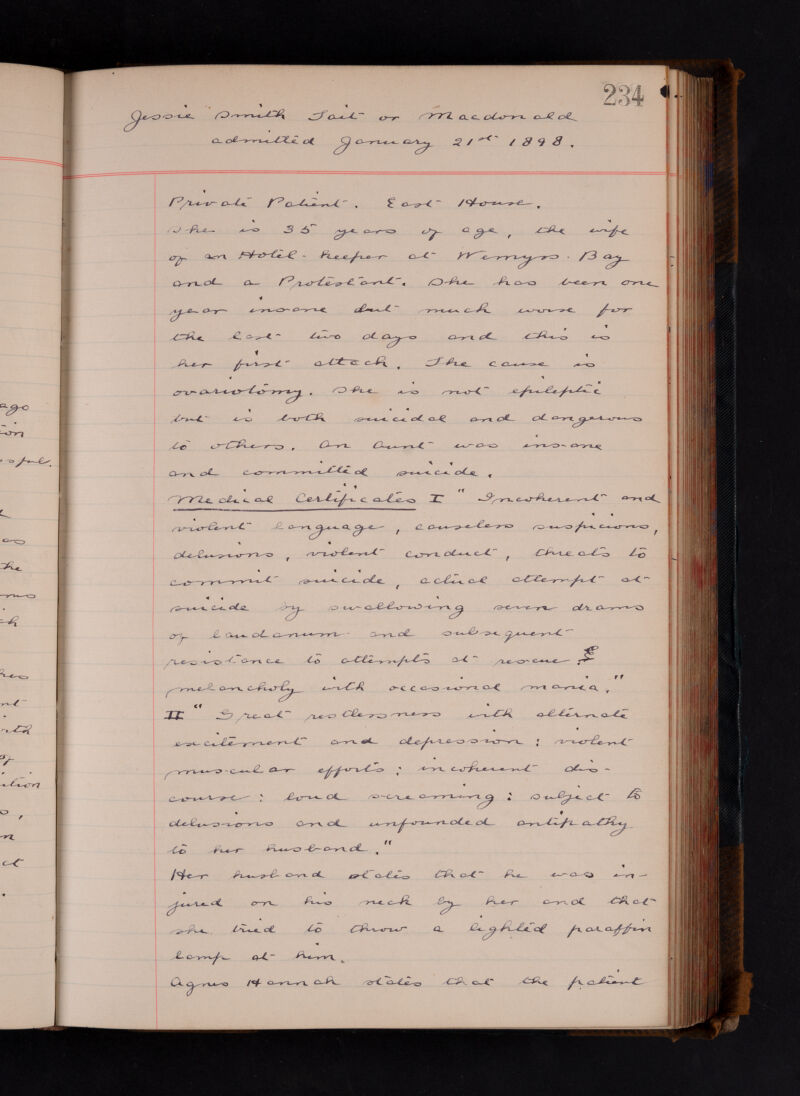 234
Jessie Smith Tait or Macdonald
admitted January 21st 1898.
Private Patient. East House.
She is 35 years of age, the wife
of an Hotel-keeper at Wemyss Bay
and a Protestant. She has been one
year insane but much worse for
the last two days and this is
her first attack. The cause is
ovariotomy. She is not epileptic
but is both suicidal and dangerous
to others. An Aunt was insane
and committed suicide.
Medical Certificates I "Incoherent and
violent language, causeless suspicions,
delusions, violent conduct, threats to
commit suicide, actual attempt at
suicide by swallowing seven drams
of laudanum and subsequent
resistance to attempts at rescue.
melancholy with occasional mania."
II "Great restlessness with alternate
excitement and depression: violent
muscular efforts: incoherent dis-
course: loud screaming: subject to
delusions and unfounded antipathy
to her husband."
Her husband states that he was in-
jured on his neck by her and that
she tried to throw a lighted paraffin
lamp at him.
Agnes Hannah states that the patient
ago
ion
ssful.
as
the
has
nt
with
of
ition
n
at